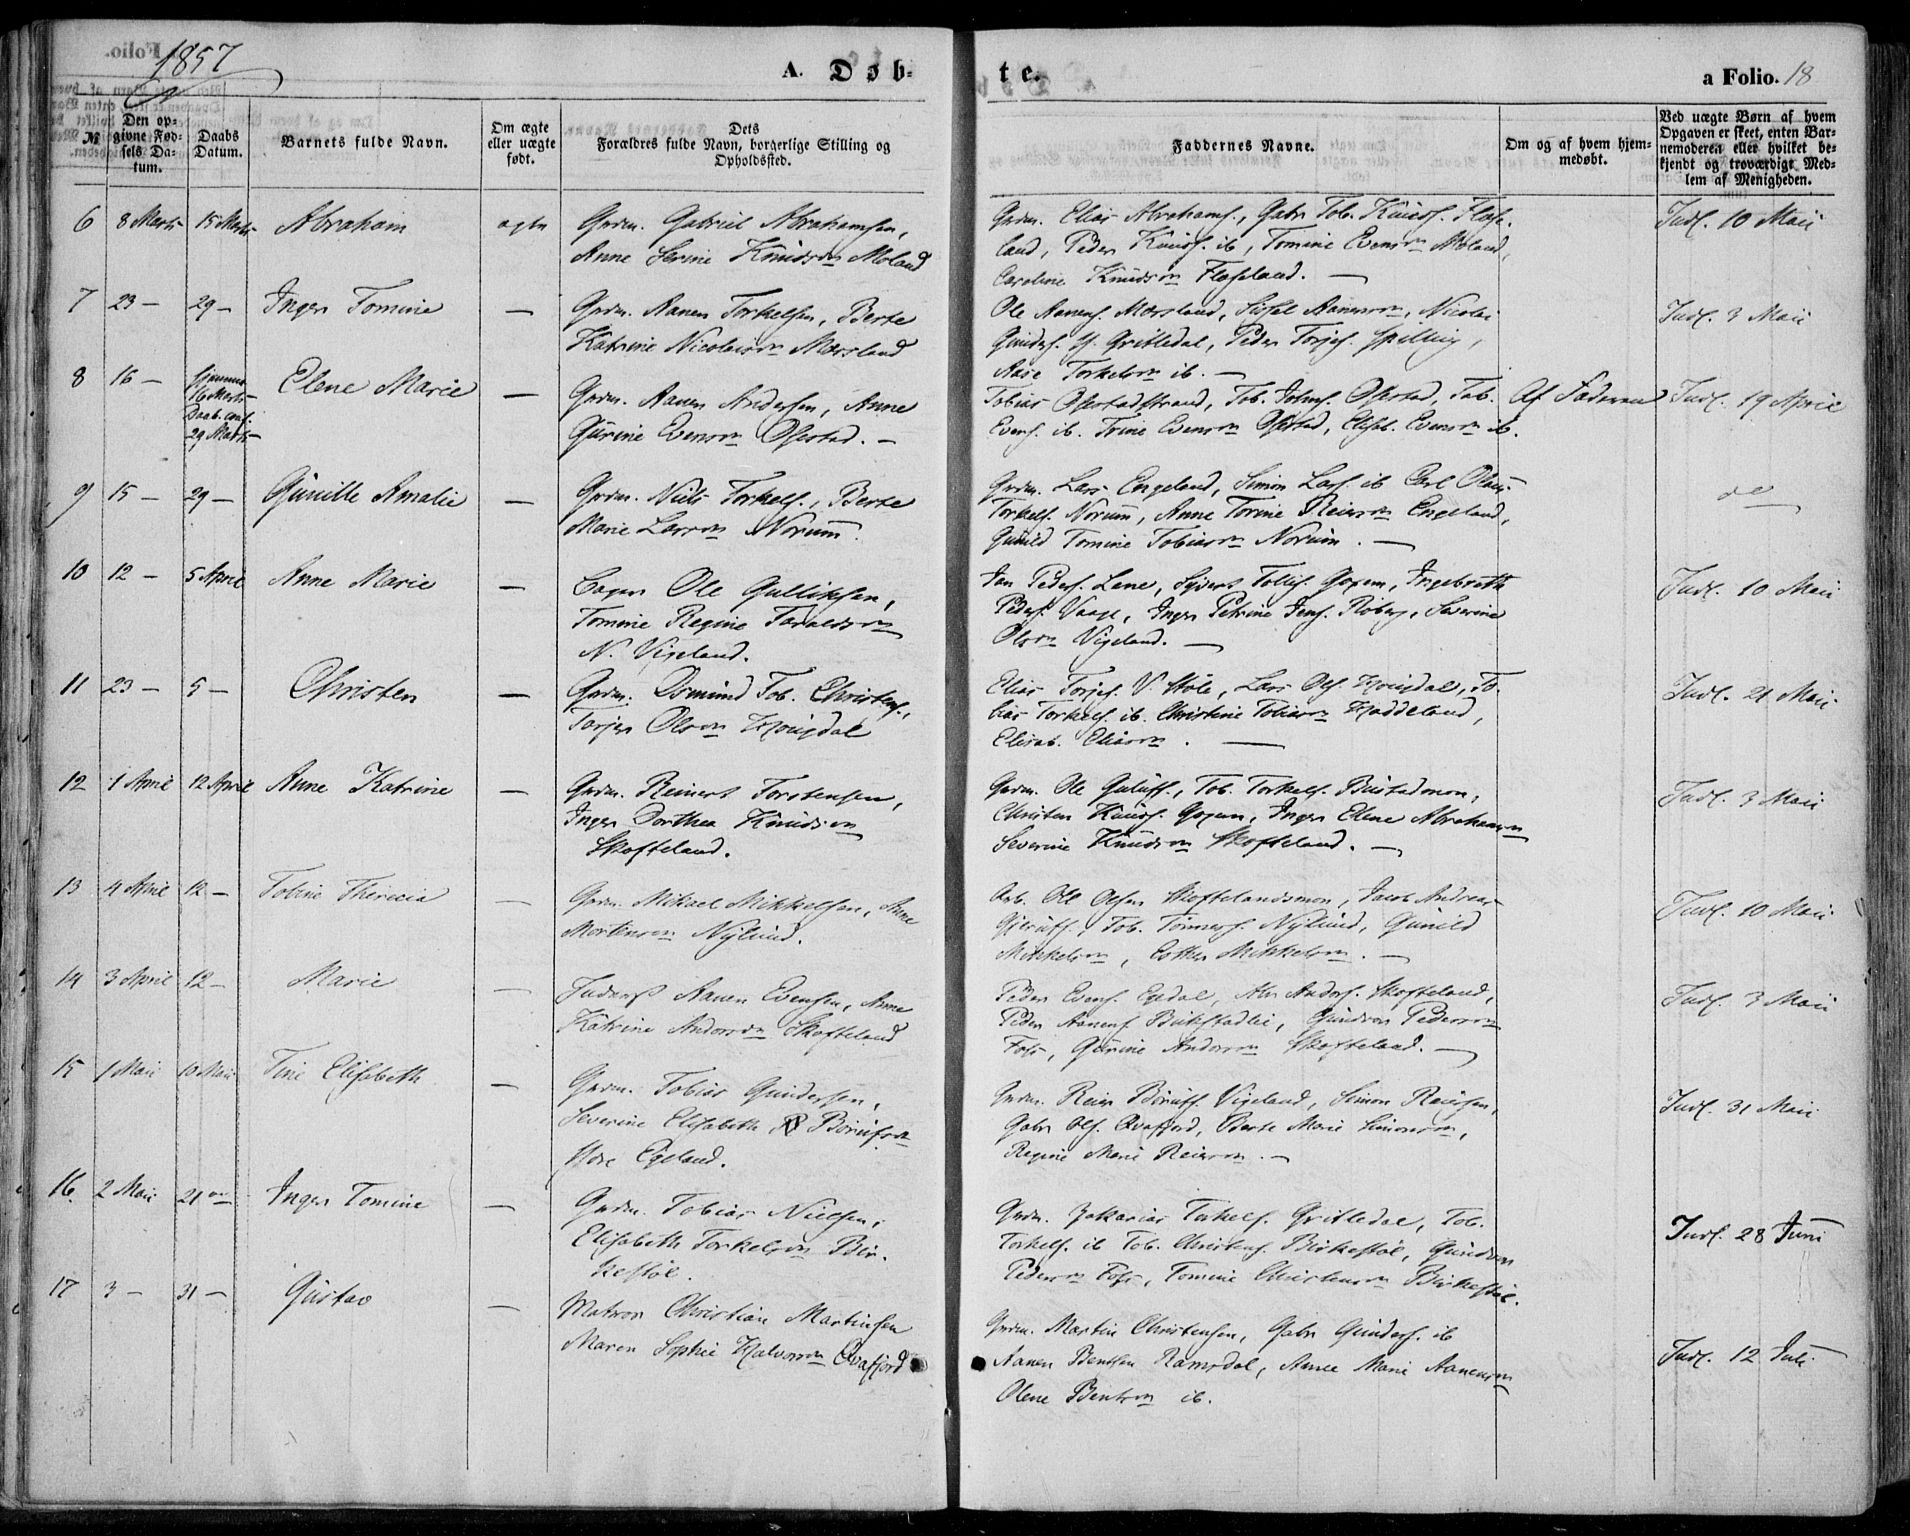 1857
A. Døb-
te.
a Folio. 18
№
Den opgivne Fødsels Datum.
Daabs Datum.
Barnets fulde Navn.
Om ægte eller uægte født.
Dets Forældres fulde Navn, borgerlige Stilling og Opholdssted.
Faddernes Navne.
Om og af hvem hjemmedøbt.
Ved uægte Børn af hvem Opgaven er skeet, enten Barnemoderen eller hvilket bekjendt og troværdigt Medlem af Menigheden.
6 8 Marts 15 Marts Abraham ægte Grdm. Gabriel Abrahamsen,
Anne Serine Knudsdn Moland
Grdm. Elias Abrahams., Gabr. Tob. Knuds. Flase-
land, Peder Knuds. ib, Tomine Evensdn Moland,
Caroline Knudsdn Flaseland. —
Indl. 10 Maii
7 23 — 29 — Inger Tomine — Grdm. Aanen Torkelsen, Berte
Katrine Nicolaisdn Mørsland
Ole Aanens. Mørsland, Sissel Aanensdn, Nicolai
Gunders. Gritledal, Peder Torjes. Spilling,
Aase Torkelsdn ib. —
Indl. 3 Maii
8 16 — Hjemme
16 Marts
Daab. conf.
29 Marts Elene Marie — Grdm. Aanen Andersen, Anne
Gurine Evensdn Ofsestad. —
Tobias Ofsestadstrand, Tob. Johns. Ofsestad, Tob.
Evens. ib. Trine Evensdn Ofsestad, Elisab. Evensdn ib.
Af Faderen Indl. 19 April
9 15 — 29 — Gunille Amalie — Grdm. Niels Torkels., Berte
Marie Larsdn Norum.
Grdm. Lars Engeland, Simon Lars. ib Carl Olaus
Torkels. Norum, Anne Torine Reiersdn Engeland,
Gunild Tomine Tobiasdn Norum. —
do
10 12 — 5 April Anne Marie — Ole Gulliksen,
Tomine Regine Taraldsdn
N. Vigeland.
Jan Peders. Lene, Syvert Tollis. Goxem, Ingebreth
Peders. Vaage, Inger Petrine Jens. Roberg, Severine
Olsdn Vigeland. —
Indl. 10 Maii
11 23 — 5 — Christen — Grdm. Osmund Tob. Christens.,
Torjer Olsdn Houngdal
Elias Torjes. V. Støle, Lars Ols. Houngdal, To-
bias Torkels. ib. Christine Tobiasdn Haddeland,
Elisab. Eliasdn. —
Indl. 21 Maii
12 1 April 12 April Anne Katrine — Grdm. Reinert Torstensen,
Inger Dorthea Knudsdn
Skofteland.
Grdm. Ole Guluffs., Tob. Torkels. Buestadmoen,
Christen Knuds. Goxem, Inger Elene Abrahamsdn
Severine Knudsdn Skofteland. —
Indl. 3 Maii
13 4 April 12 — Tobine Therecia — Grdm. Mikael Mikkelsen, Anne
Mortensdn Nylund.
Arb. Ole Olsen Skoftelandsmoen, Jacob Andreas
Tob. Tønness. Nylund, Gunild
Mikkelsdn, Esther Mikkelsdn. —
Indl. 10 Maii
14 3 April 12 — Marie — Inderst Aanen Evensen, Anne
Katrine Andersdn Skofteland
Peder Evens. Egdal, Abr Anders. Skofteland,
Peder Aanens. Birkestadlie, Gundvor Pedersdn
Foss, Gurine Andersdn Skofteland. —
Indl. 3 Maii
15 1 Maii 10 Maii Tine Elisabeth — Grdm. Tobias Gundersen,
Severine Elisabeth Børufsdn
Store Egeland.
Grdm. Reier Børufs. Vigeland, Simon Reiersen,
Gabr Ols. Qvafjord, Berte Marie Simonsdn,
Regine Marie Reiersdn. —
Indl. 31 Maii
16. 2 Maii 21 — Inger Tomine — Grdm. Tobias Nielsen,
Elisabeth Torkelsdn Bir-
kestøl.
Grdm. Zakarias Torkels. Gritledal, Tob.
Torkels. ib Tob. Christens. Birkestøl, Gundvor
Pedersdn Foss, Tomine Christensdn Birkestøl.
Indl. 28 Juni
17 3 — 31 — Gustav — Matros Christian Martinsen
Maren Sophie Halvorsdn Qvafjord
Grdm. Martin Christensen, Gabr Gunders. ib
Aanen Bentsen Ramsdal, Anne Marie Aanensdn
Olene Bentsdn ib.
Indl. 12 Juli